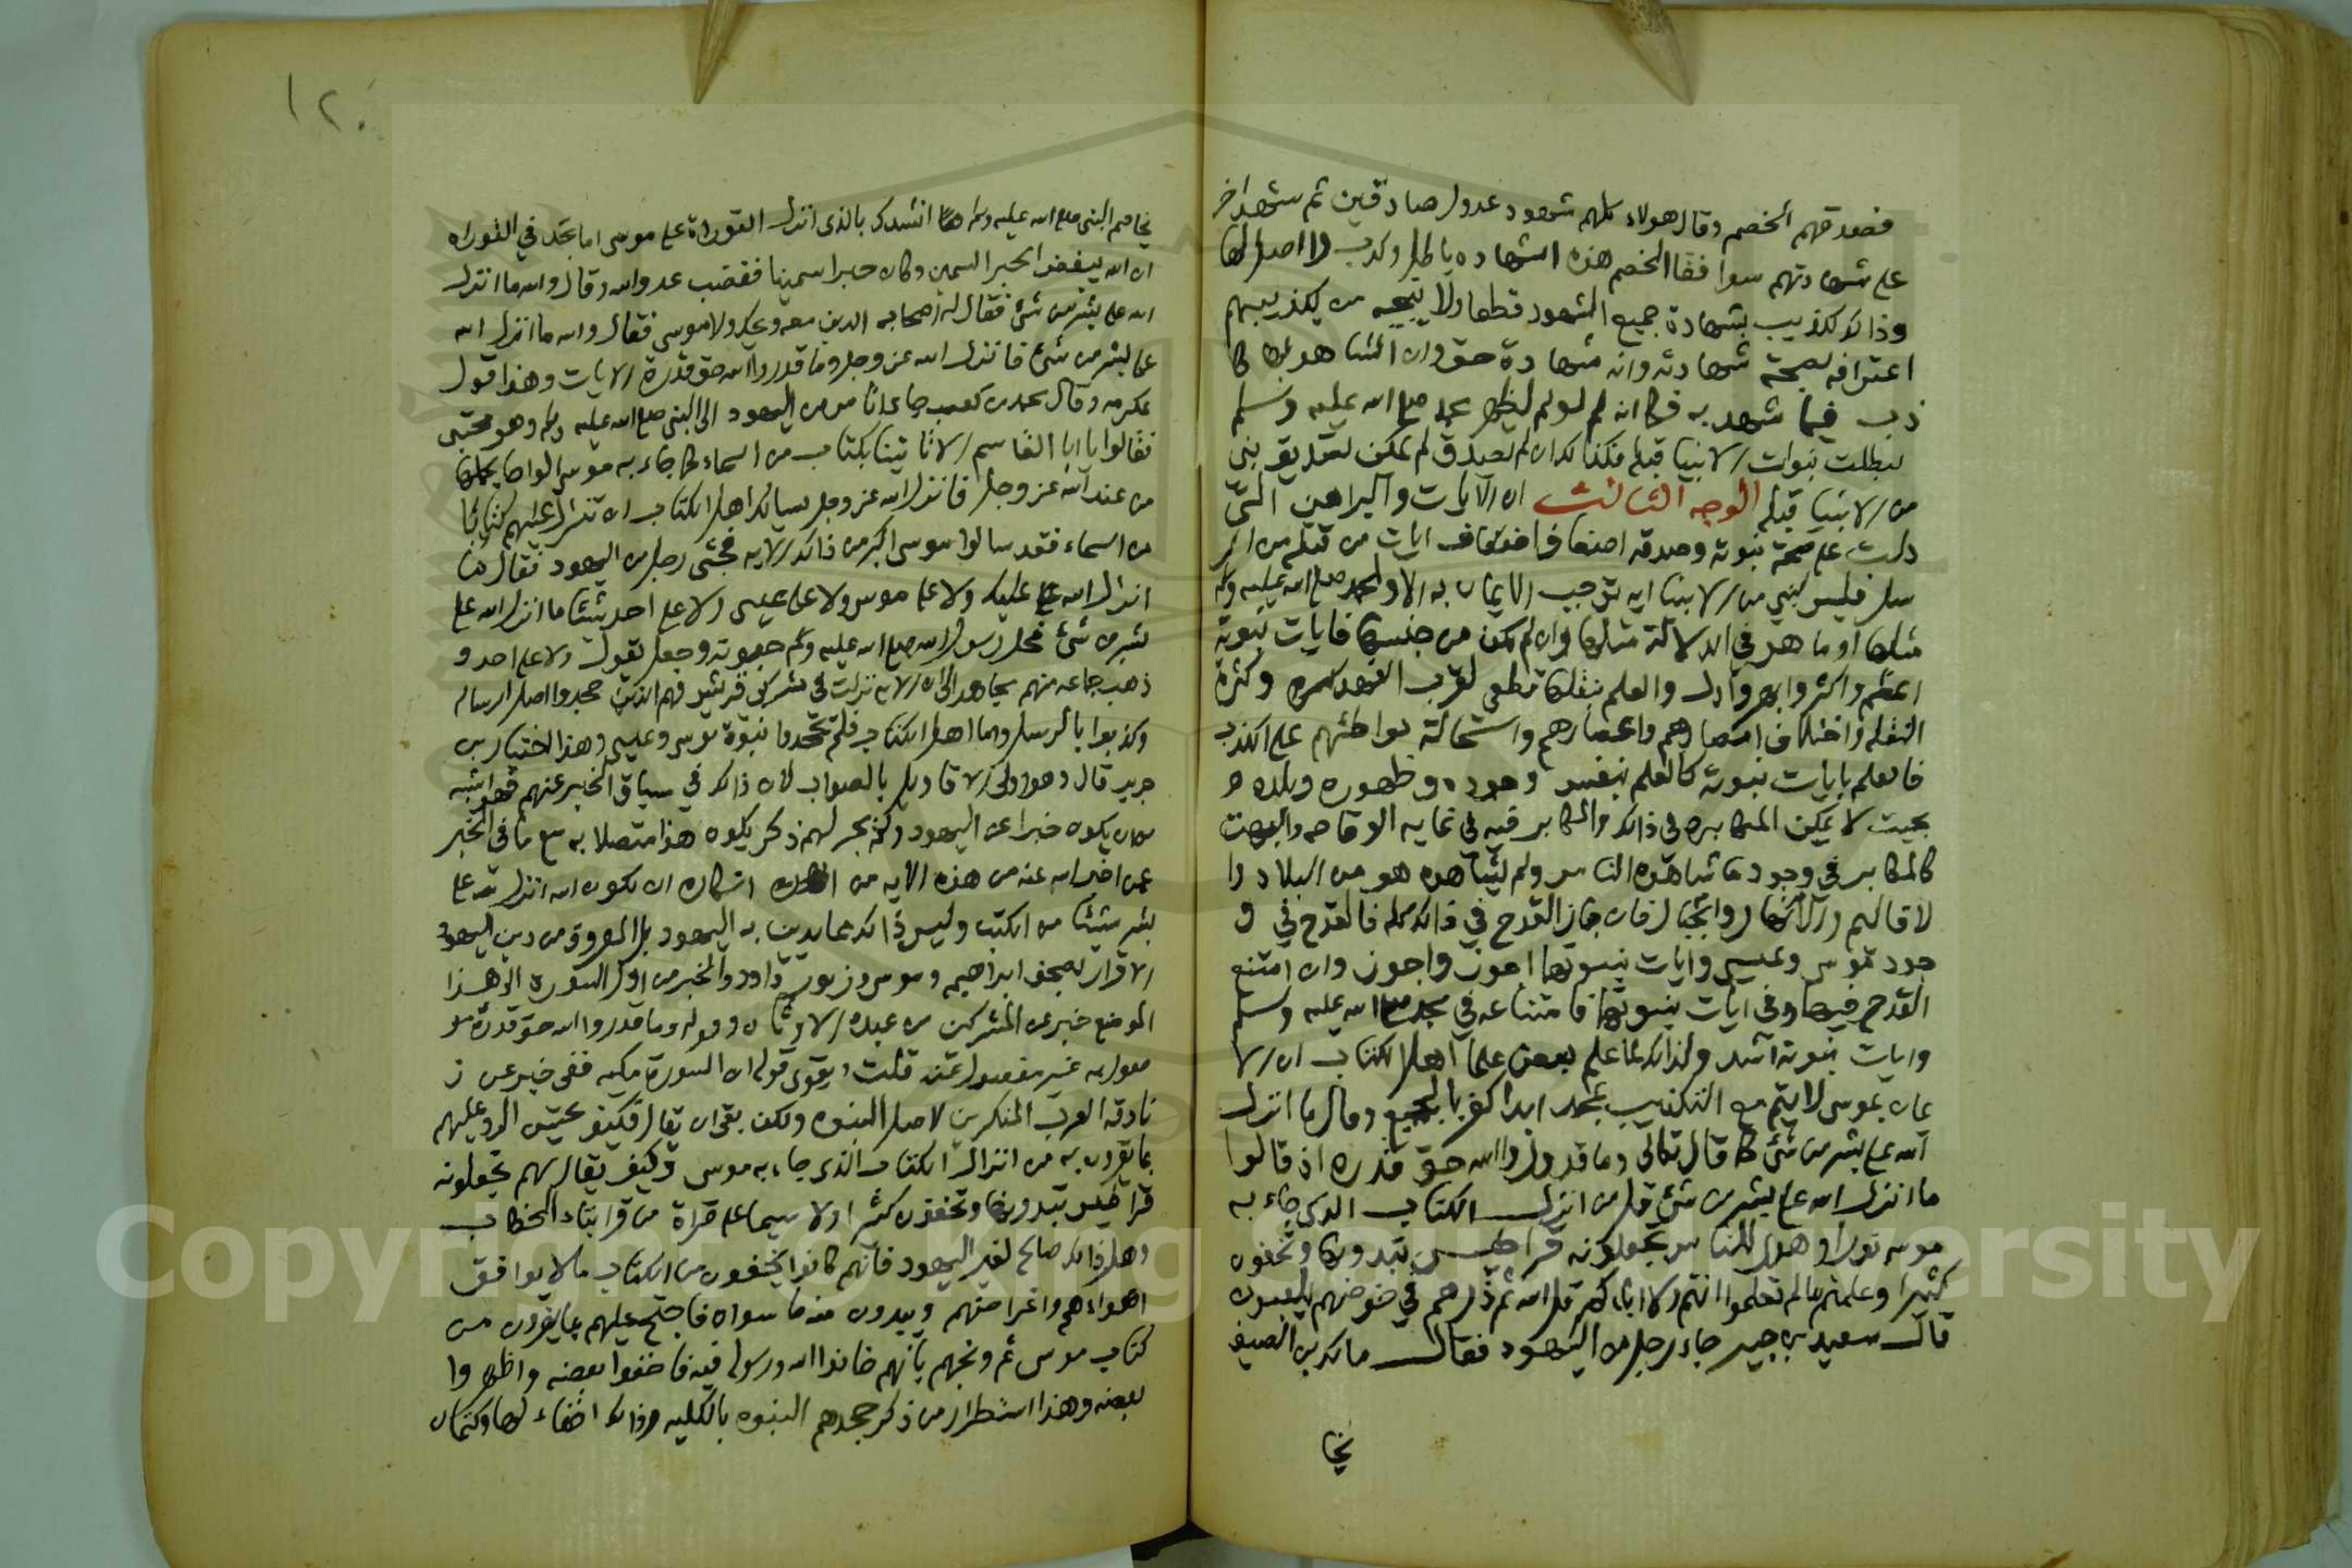 فصدقهم الخصم وقال هولاء كلهم شهود عدول صادقين ثم شهد اخر
على شهادتهم سوا فقال الخصم هذه الشهاده باطل وكذب لا اصل لها
وذالك تكذيب بشهادة جميع الشهود قطعا ولا ينجيه من تكذيبهم
اعترافه بصحة شهادته وانه شهادة حق وان الشاهد بها كا
ذب فيما شهد به فكما انه لو لم يظهر محمد صلى الله عليه وسلم
لبطلت نبوات الانبيا قبله فكذالك ان لم يصدق لم يمكن تصديق نبي
من الانبيا قبله الوجه الثالث ان الايات والبراهين التي
دلت على صحة نبوته وصدقه اضعاف اضعاف ايات من قبله من الر
سل فليس لنبي من الانبيا اية توجب الايمان به الا ولمحمد صلى الله عليه وسلم
مثلها او ما هو في الدلالة مثلها وان لم يكن من جنسها فايات نبوته
اعظم واكثر وابهر وادل والعلم بنقلها قطعي لقرب العهد وكثرة
النقله واختلاف امصارهم واعصارهم واستحالة تواطئهم على الكذب
فالعلم بايات نبوته كالعلم بنفس وجوده وظهوره وبلده
بحيث لا يمكن المكابره في ذالك والمكابر فيه في غايه الوقاحه والبهت
كالمكابر في وجود ما شاهده الناس ولم يشاهده هو من البلاد وا
لاقاليم والانهار والجبال فان جاز القدح في ذالك كله فالقدح في و
جود موسى وعيسى وايات نبوتهما اجوز واجوز وان امتنع
القدح فيهما وفي ايات نبوتهما فامتناعه في محمد صلى الله عليه وسلم
وايات نبوته اشد ولذالك لما علم بعض علما اهل الكتاب ان الا
يمان بموسى لا يتم مع التكذيب بمحمد ابدا كفر بالجميع وقال ما انزل
الله على بشر من شئ كما قال تعالى وما قدروا الله حق قدره اذ قالوا
ما انزل الله على بشر من شئ قل من انزل الكتاب الذي جاء به
موسى نورا وهدى للناس تجعلونه قراطيس تبدونها وتخفون
كثيرا وعلمتم مالم تعلموا انتم ولا اباءكم قل الله ثم ذرهم في خوضهم يلعبون
قال سعيد بن جبير جاء رجل من اليهود فقال مالك بن الصيف
يخا
١٢٠
يخاصم النبي صلى الله عليه وسلم انشدك بالذي انزل التوراة على موسى اما تجد في التوراه
ان الله يبغض الحبر السمين وكان حبرا سمينا فغضب عدو الله وقال والله ما انزل
الله على بشر من شئ فقال له اصحابه الذين معه ويحك ولا موسى فقال والله ما انزل الله
على بشر من شئ فانزل الله عز وجل وما قدروا الله حق قدره الايات وهذا قول
عكرمه وقال محمد بن كعب جاء اناس من اليهود الى النبي صلى الله عليه وسلم وهو محتبي
فقالوا يا ابا القاسم الا تاتينا بكتاب من السماء كما جاء به موسى الواحا يحملها
من عند الله عز وجل فانزل الله عز وجل يسالك اهل الكتاب ان تنزل عليهم كتابا
من السماء فقد سالوا موسى اكبر من ذالك الايه فجثى رجل من اليهود فقال ما
انزل الله عليك ولا على موسى ولا على عيسى ولا على احد شيئا ما انزل الله على
بشر من شئ فحل رسول الله صلى الله عليه وسلم حبوته وجعل يقول ولا على احد و
ذهب جماعه منهم مجاهد الى ان الايه نزلت في مشركي قريش فهم الذين جحدوا اصل الرساله
وكذبوا بالرسل واما اهل الكتاب فلم يجحدوا نبوة موسى وعيسى وهذا اختيار بن
جرير قال وهو اولى الاقاويل بالصواب لان ذالك في سياق الخبر عنهم فهو اشبه
من ان يكون خبرا عن اليهود ولم يجر لهم ذكر يكون هذا متصلا به مع ما في الخبر
عمن اخبر الله عنه من هذه الايه من انكاره ان يكون الله انزل على
بشر شيئا من الكتب وليس ذالك مما يدين به اليهود بل المعروف من دين اليهود
الاقرار بصحف ابراهيم وموسى وزبور داود والخبر من اول السورة الى هذا
الموضع خبر عن المشركين من عبدة الاوثان وقوله وما قدروا الله حق قدره مو
صول به غير مفصول عنه قلت ويقوي قوله ان السورة مكيه فهي خبر عن ز
نادقه العرب المنكرين لاصل النبوه ولكن بقى ان يقال فكيف يحسن الرد عليهم
بما يقرون به من انزال الكتاب الذي جاء به موسى وكيف يقال لهم تجعلونه
قراطيس تبدونها وتخفون كثيرا ولا سيما على قراة من قرا بتاء الخطاب
وهل ذالك صالح لغير اليهود فانهم كانوا يخفون من الكتاب ما لا يوافق
اهواءهم واغراضهم ويبدون منه ما سواه فاحتج عليهم بما يقرون من
كتاب موسى ثم وبخهم بانهم خانوا الله ورسوله فيه فاخفوا بعضه واظهروا
بعضه وهذا استطراد من ذكر جحدهم النبوه بالكليه وذالك اخفاء لها وكتمان
Copyright © King Saud University